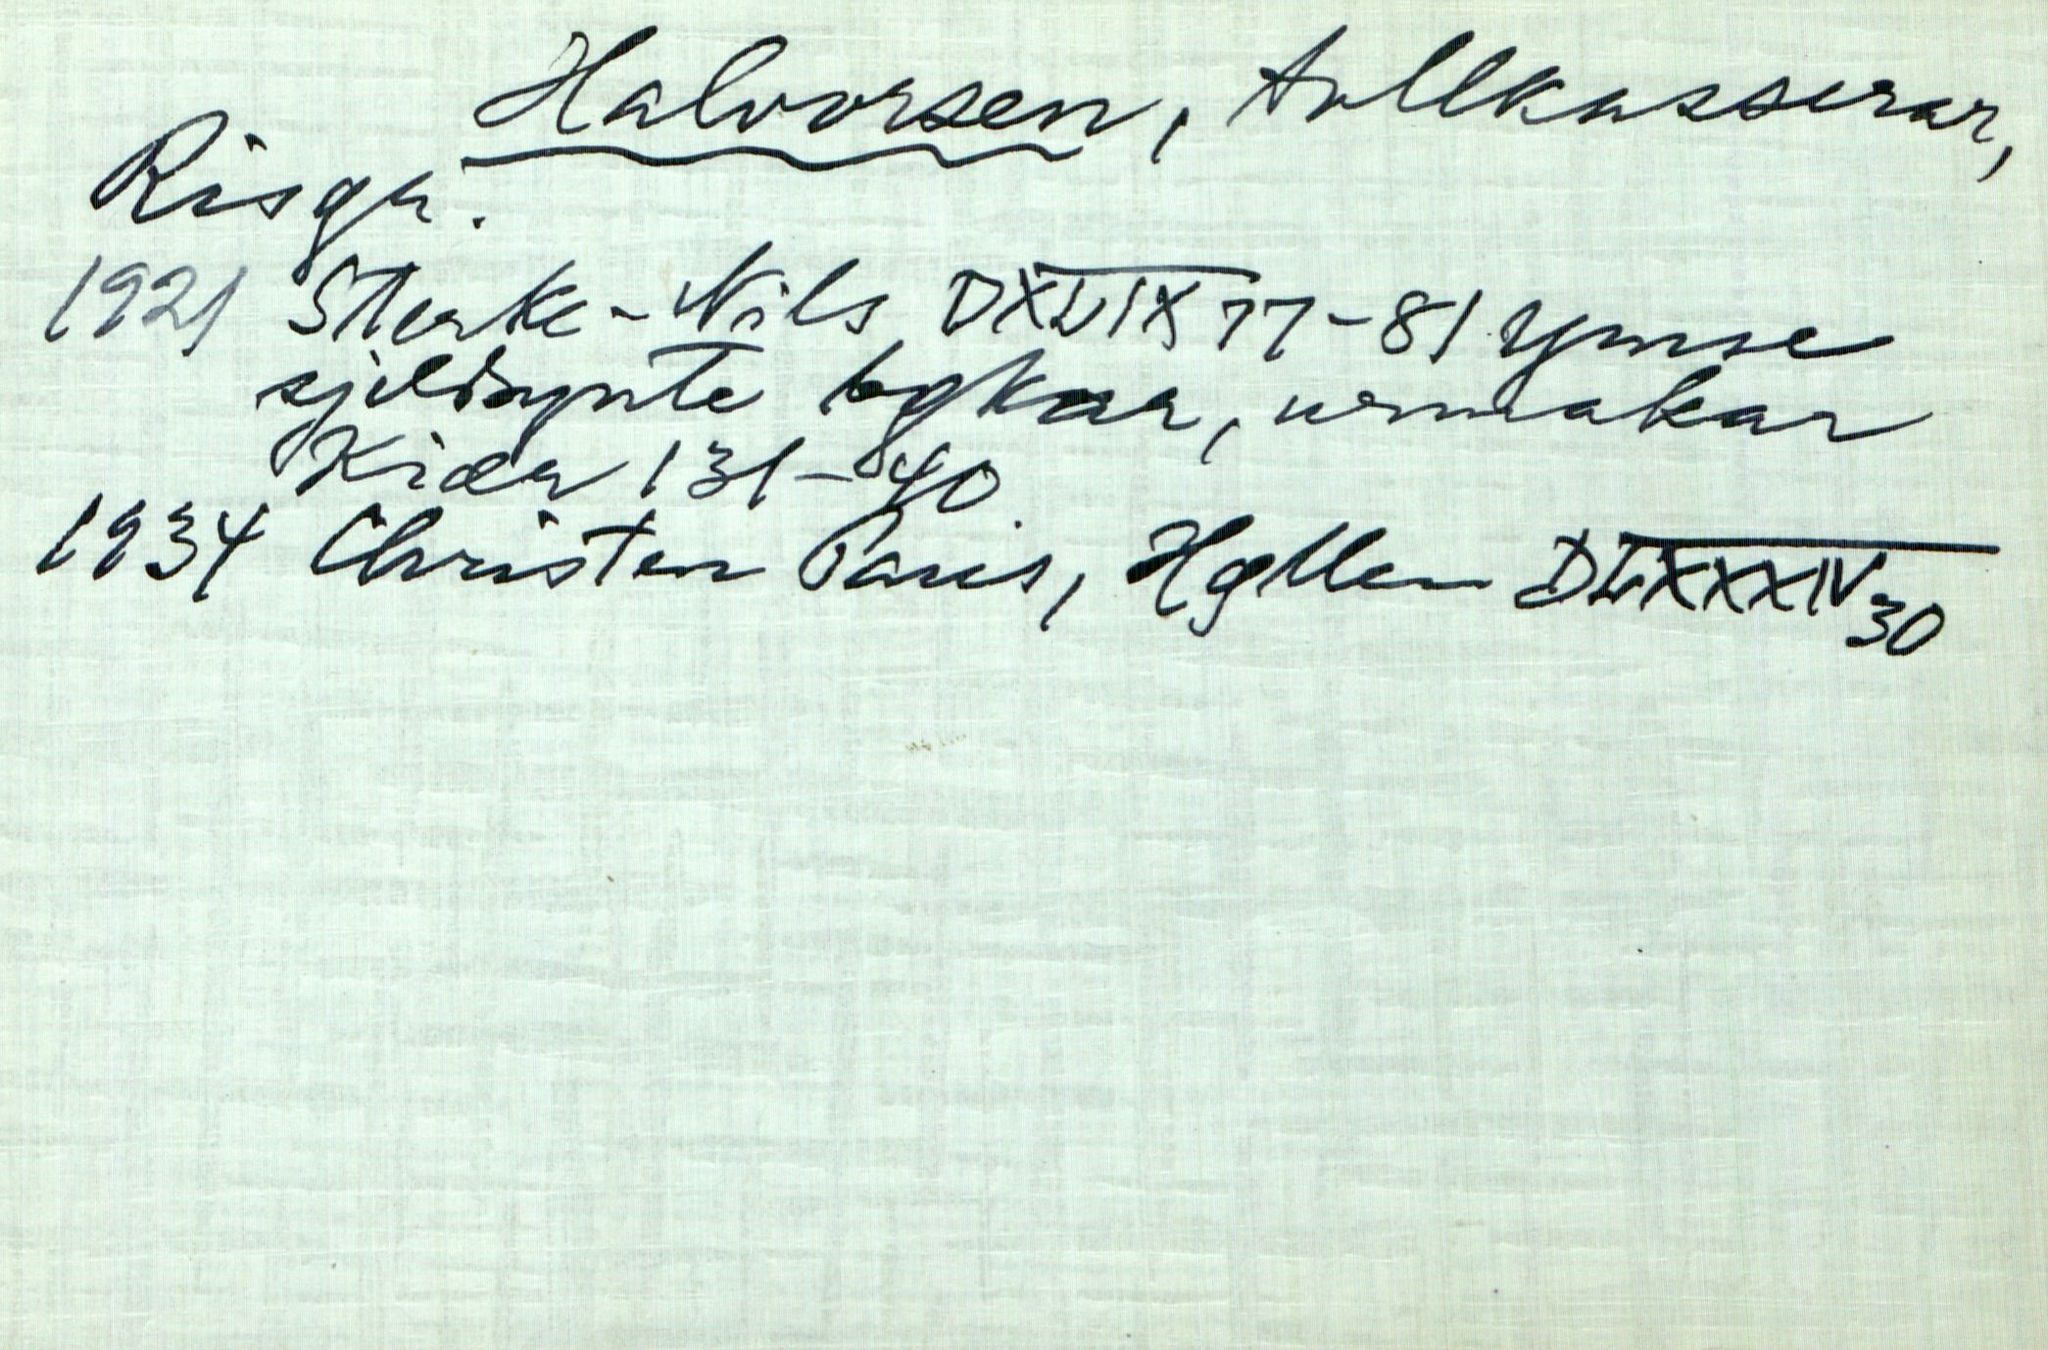 Halvorsen, tollkasserar,
Risør.
1921 Sterke-Nils DXLIX 77-81 Ymse
sjeldsynte bykar, urmakar
Kiær 131-40.
1934 Christen Paus, Hgllen DLXXXIV 30